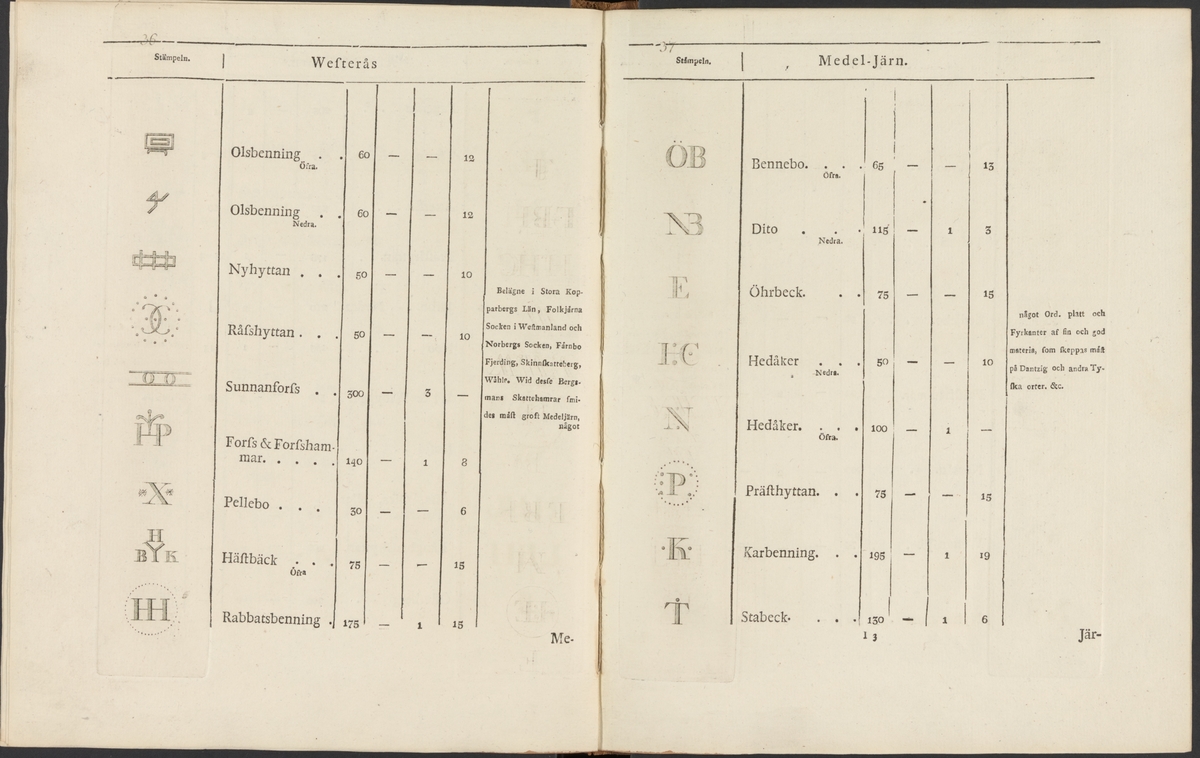 36
Stämpeln. Weſterås
Olsbenning . . 60 — — 12
Öfra.
Olsbenning . . 60 — — 12
Nedra.
Nyhyttan . . . 50 — — 10
Råſshyttan . . . 50 — — 10
Sunnanforſs . . 300 — 3 —
HP
Forſs & Forſsham-
mar. . . . . . 140 — 1 8
*X*
Pellebo . . . 30 — — 6
H
BYK
Häſtbäck . . . 75 — — 15
Öfra
HH
Rabbatsbenning . 175 — 1 15
Belägne i Stora Kop-
parbergs Län, Folkjärna
Socken i Weſtmanland och
Norbergs Socken, Färnbo
Fjerding, Skinnſkatteberg,
Wåhle. Wid deſse Bergs-
mans Skattehamrar ſmi-
des måſt groft Medeljärn,
något
Me-
37
Stämpeln. Medel-Järn.
ÖB Bennebo. . . . 65 — — 13
Öfra.
NB Dito . . . 115 — 1 3
Nedra.
E Öhrbeck. . . 75 — — 15
Hedåker . . . 50 — — 10
Nedra.
N Hedåker. . . . 100 — 1 —
Öfra.
P Präſthyttan. . . 75 — — 15
·K· Karbenning. . . 195 — 1 19
T Stabeck. . . . 130 — 1 6
något Ord. platt och
Fyrkanter af fin och god
materia, ſom ſkeppas måſt
på Dantzig och andra Ty-
ſka orter. &c.
I 3
Jär-